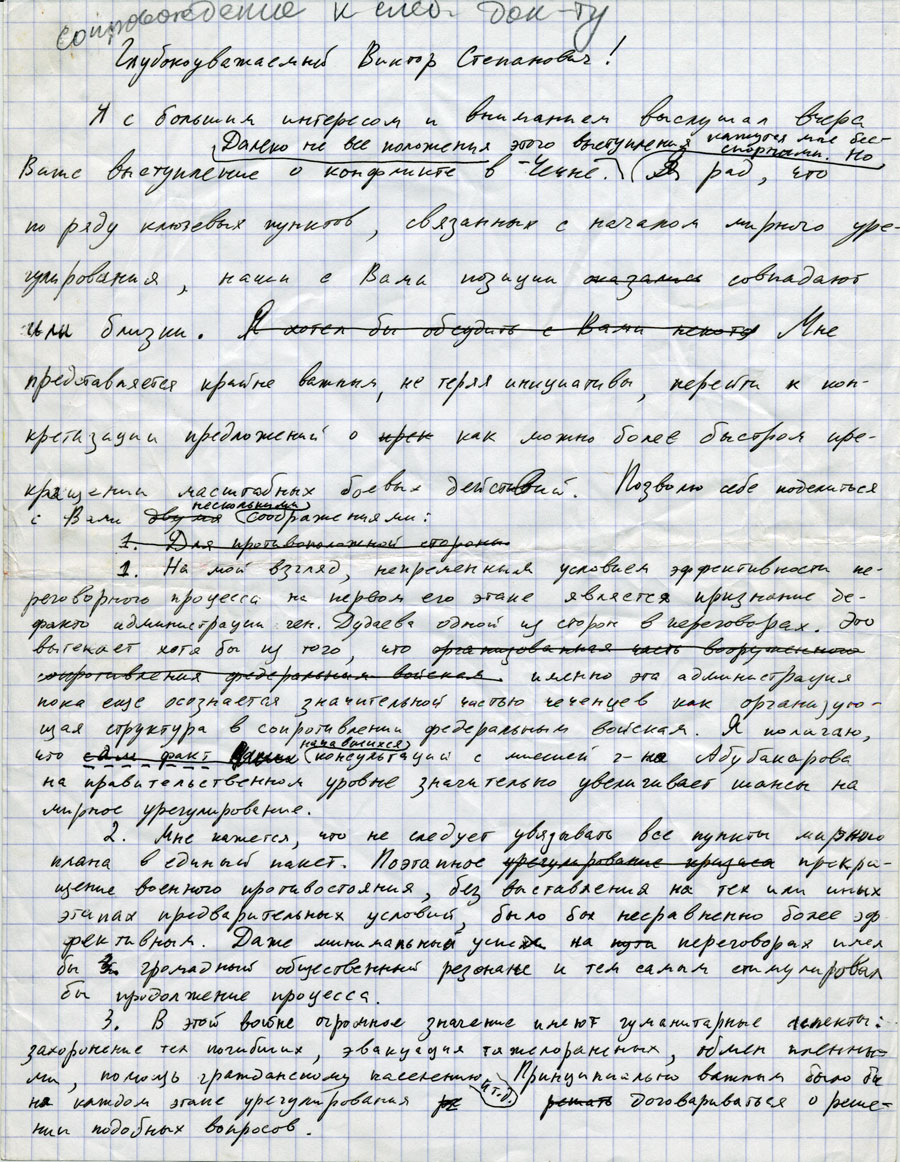 сопровождение к след. док-ту
Глубокоуважаемый Виктор Степанович!
Я с большим интересом и вниманием выслушал вчера
Далеко не все положения этого выступления кажутся мне бес-
спорными. Но
Ваше выступление о конфликте в Чечне. Я рад, что
по ряду ключевых пунктов, связанных с началом мирного уре-
гулирования, наши с Вами позиции оказались совпадают
или близки. Я хотел бы обсудить с Вами некото Мне
представляется крайне важным, не теряя инициативы, перейти к кон-
кретизации предложений о прек как можно более быстром пре-
кращении масштабных боевых действий. Позволю себе поделиться
несколькими
с Вами двумя соображениями:
1. Для противоположной стороны
1. На мой взгляд, непременным условием эффективности пе-
реговорного процесса на первом его этапе является признание де-
факто администрации ген. Дудаева одной из сторон в переговорах. Это
вытекает хотя бы из того, что организованная часть вооруженного
сопротивления федеральным войскам именно эта администрация
пока еще осознается значительной частью чеченцев как организую-
щая структура в сопротивлении федеральным войскам. Я полагаю,
начавшихся
что сам факт консультаций с миссией г-на Абубакарова
на правительственном уровне значительно увеличивает шансы на
мирное урегулирование.
2. Мне кажется, что не следует увязывать все пункты мирного
плана в единый пакет. Поэтапное урегулирование кризиса прекра-
щение военного противостояния, без выставления на тех или иных
этапах предварительных условий, было бы несравненно более эф-
фективным. Даже минимальный успех на пути переговорах имел
бы громадный общественный резонанс и тем самым стимулировал
бы продолжение процесса.
3. В этой войне огромное значение имеют гуманитарные аспекты:
захоронение тех погибших, эвакуация тяжелораненых, обмен пленны-
ми, помощь гражданскому населению и т.д. Принципиально важным было бы
на каждом этапе урегулирования решать договариваться о реше-
нии подобных вопросов.